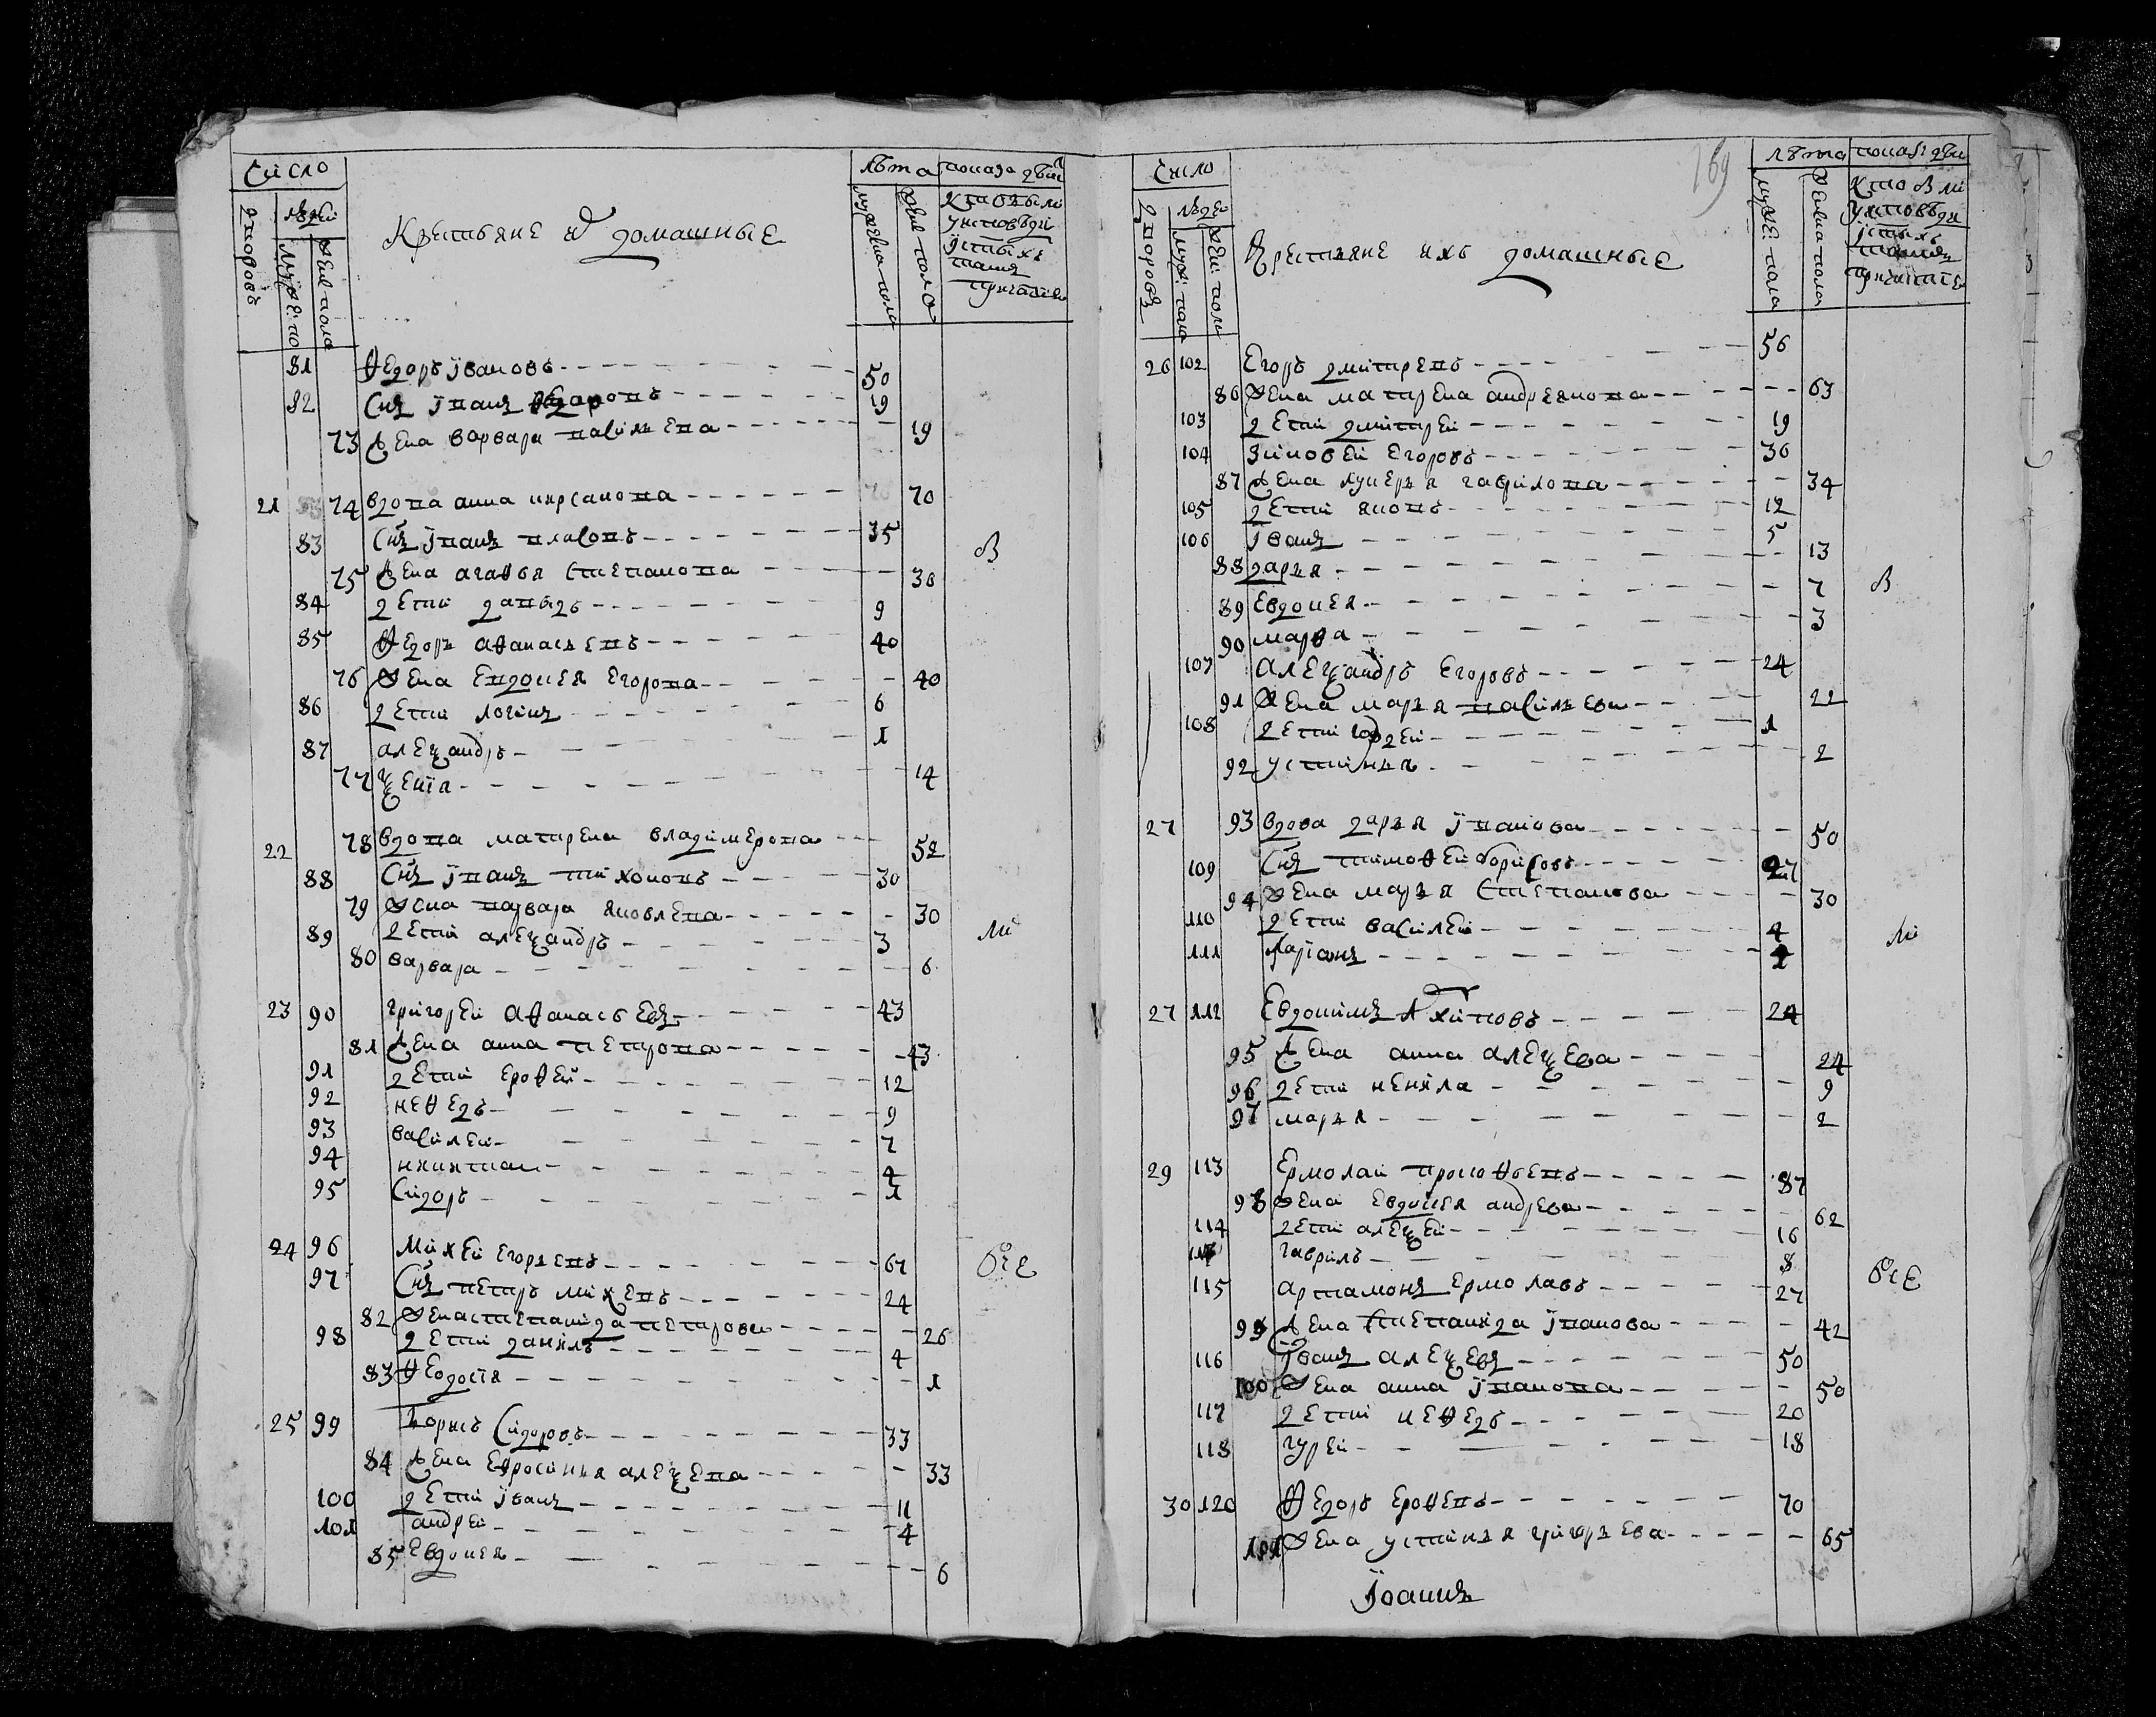 Число
Лѣта показа двй
дворовъ
людей
мужес по
женс пола
Крестьяне и домашные
мужеска пола
женс пола
кто были
у исповѣди
у стыхъ
таинъ
81 Ѳедоръ Ївановъ 50
82 Снъ Їванъ Ѳедоровъ 19
73 Жена варвара васильева 19
21 74 вдова анна кирсанова 70
83 Снъ Їванъ власовъ 35
75 Жена агаѳья степанова 36
84 дети давыдъ 9
85 Ѳедоръ аѳанасьевъ 40
76 Жена Евдокея Егорова 40
86 дети логинъ 6
87 алеѯандръ 1
77 ѯенїя 14
22 78 вдова матрена владимерова 52
88 Снъ Їванъ тихоновъ 30
79 Жена варвара яковлева 30
89 дети алеѯандръ 3
80 варвара 6
23 90 григорей аѳанасьевъ 43
81 Жена анна петрова 43
91 дети ероѳей 12
92 неѳедъ 9
93 василей 7
94 никита 4
95 Сидоръ 1
24 96 Михей Егорьевъ 67
97 Снъ петръ михевъ 24
82 Жена степанида петрова 26
98 дети данилъ 4
83 Ѳеодосїя 1
25 99 Борисъ Сидоровъ 33
84 Жена Ефросинья алеѯева 33
100 дети Їванъ 11
101 андрей 4
85 Евдокея 6
В
ли
все
169
Число
лѣта показ двй
дворовъ
людей
муже пола
жен пола
Крестьяне ихъ домашные
муже пола
женска пола
кто были
у исповѣди
у стыхъ
таинъ
26 102 Егоръ дмитревъ 56
86 Жена матрена андреянова 63
103 дети дмитрей 19
104 Зиновей Егоровъ 36
87 Жена лукерья гаврилова 34
105 дети яковъ 12
106 Їванъ 5
88 дарья 13
89 Евдокея 7
90 марѳа 3
107 алеѯандръ Егоровъ 24
91 Жена марья васильева 22
108 дети гордей 1
92 устинья 2
27 93 вдова дарья Їванова 50
109 Снъ тимоѳей борисовъ 27
94 Жена марья степанова 30
110 дети василей 4
111 Ларїонъ 1
27 112 Евдокимъ Архиповъ 24
95 Жена анна алеѯева 24
96 дети ненила 9
97 марья 2
29 113 Ермолай прокоѳьевъ 87
98 Жена Евдокея андрева 62
114 дети алеѯей 16
гаврилъ 8
115 артамонъ Ермолавъ 27
99 Жена степанида Їванова 42
116 Їванъ алеѯевъ 50
100 Жена анна Їванова 50
117 дети неѳедъ 20
118 гурей 18
30 120 Ѳедоръ Ероѳевъ 70
101 Жена устинья григорьева 65
В
ли
все
Їоаннъ